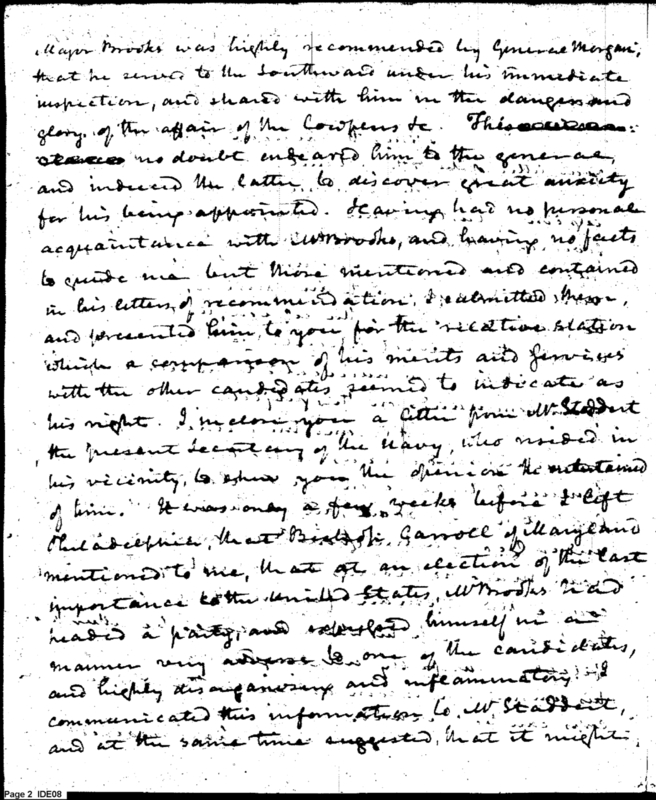 Major Brooks was highly recommended by General Morgan;
that he served to the Southward under his immediate
inspection, and shared with him in the dangers and
glory of the affair of the Cowpens &c. This
no doubt endeared him to the general,
and induced the latter to discover great anxiety
for his being appointed. Having had no personal
acquaintance with Mr Brooks, and having no facts
to guide me but those mentioned and contained
in his letters of recommendation, I submitted them,
and presented him to you for the relative station
which a comparison of his merits and services
with the other candidates seemed to indicate as
his right. I inclose you a letter from Mr Stoddert
the present Secretary of the Navy, who resided in
his vicinity, to shew you the opinion he entertained
of him. It was only a few weeks before I left
Philadelphia, that Bishop Carroll of Maryland
mentioned to me, that at an election of the last
importance to the United States, Mr Brooks had
headed a party, and himself in a
manner very adverse to one of the candidates,
and highly disorganising and inflammatory. I
communicated this information to Mr Stoddert,
and at the same time suggested, that it might
Page 2 IDE08